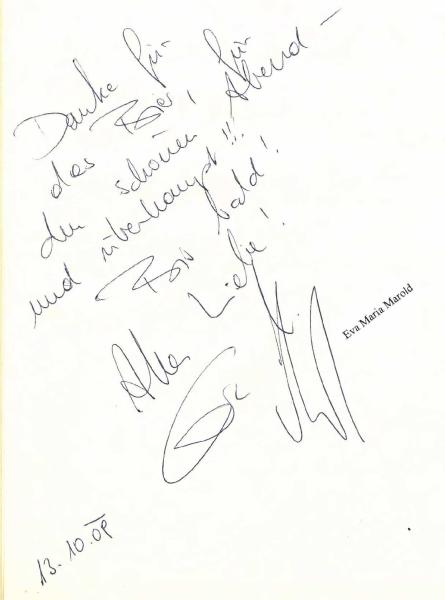 Danke für
das Bier, für
den schönen Abend –
und überhaupt!!!
Bis bald!
Alles Liebe!
Eva M.
Eva Maria Marold
13.10.09